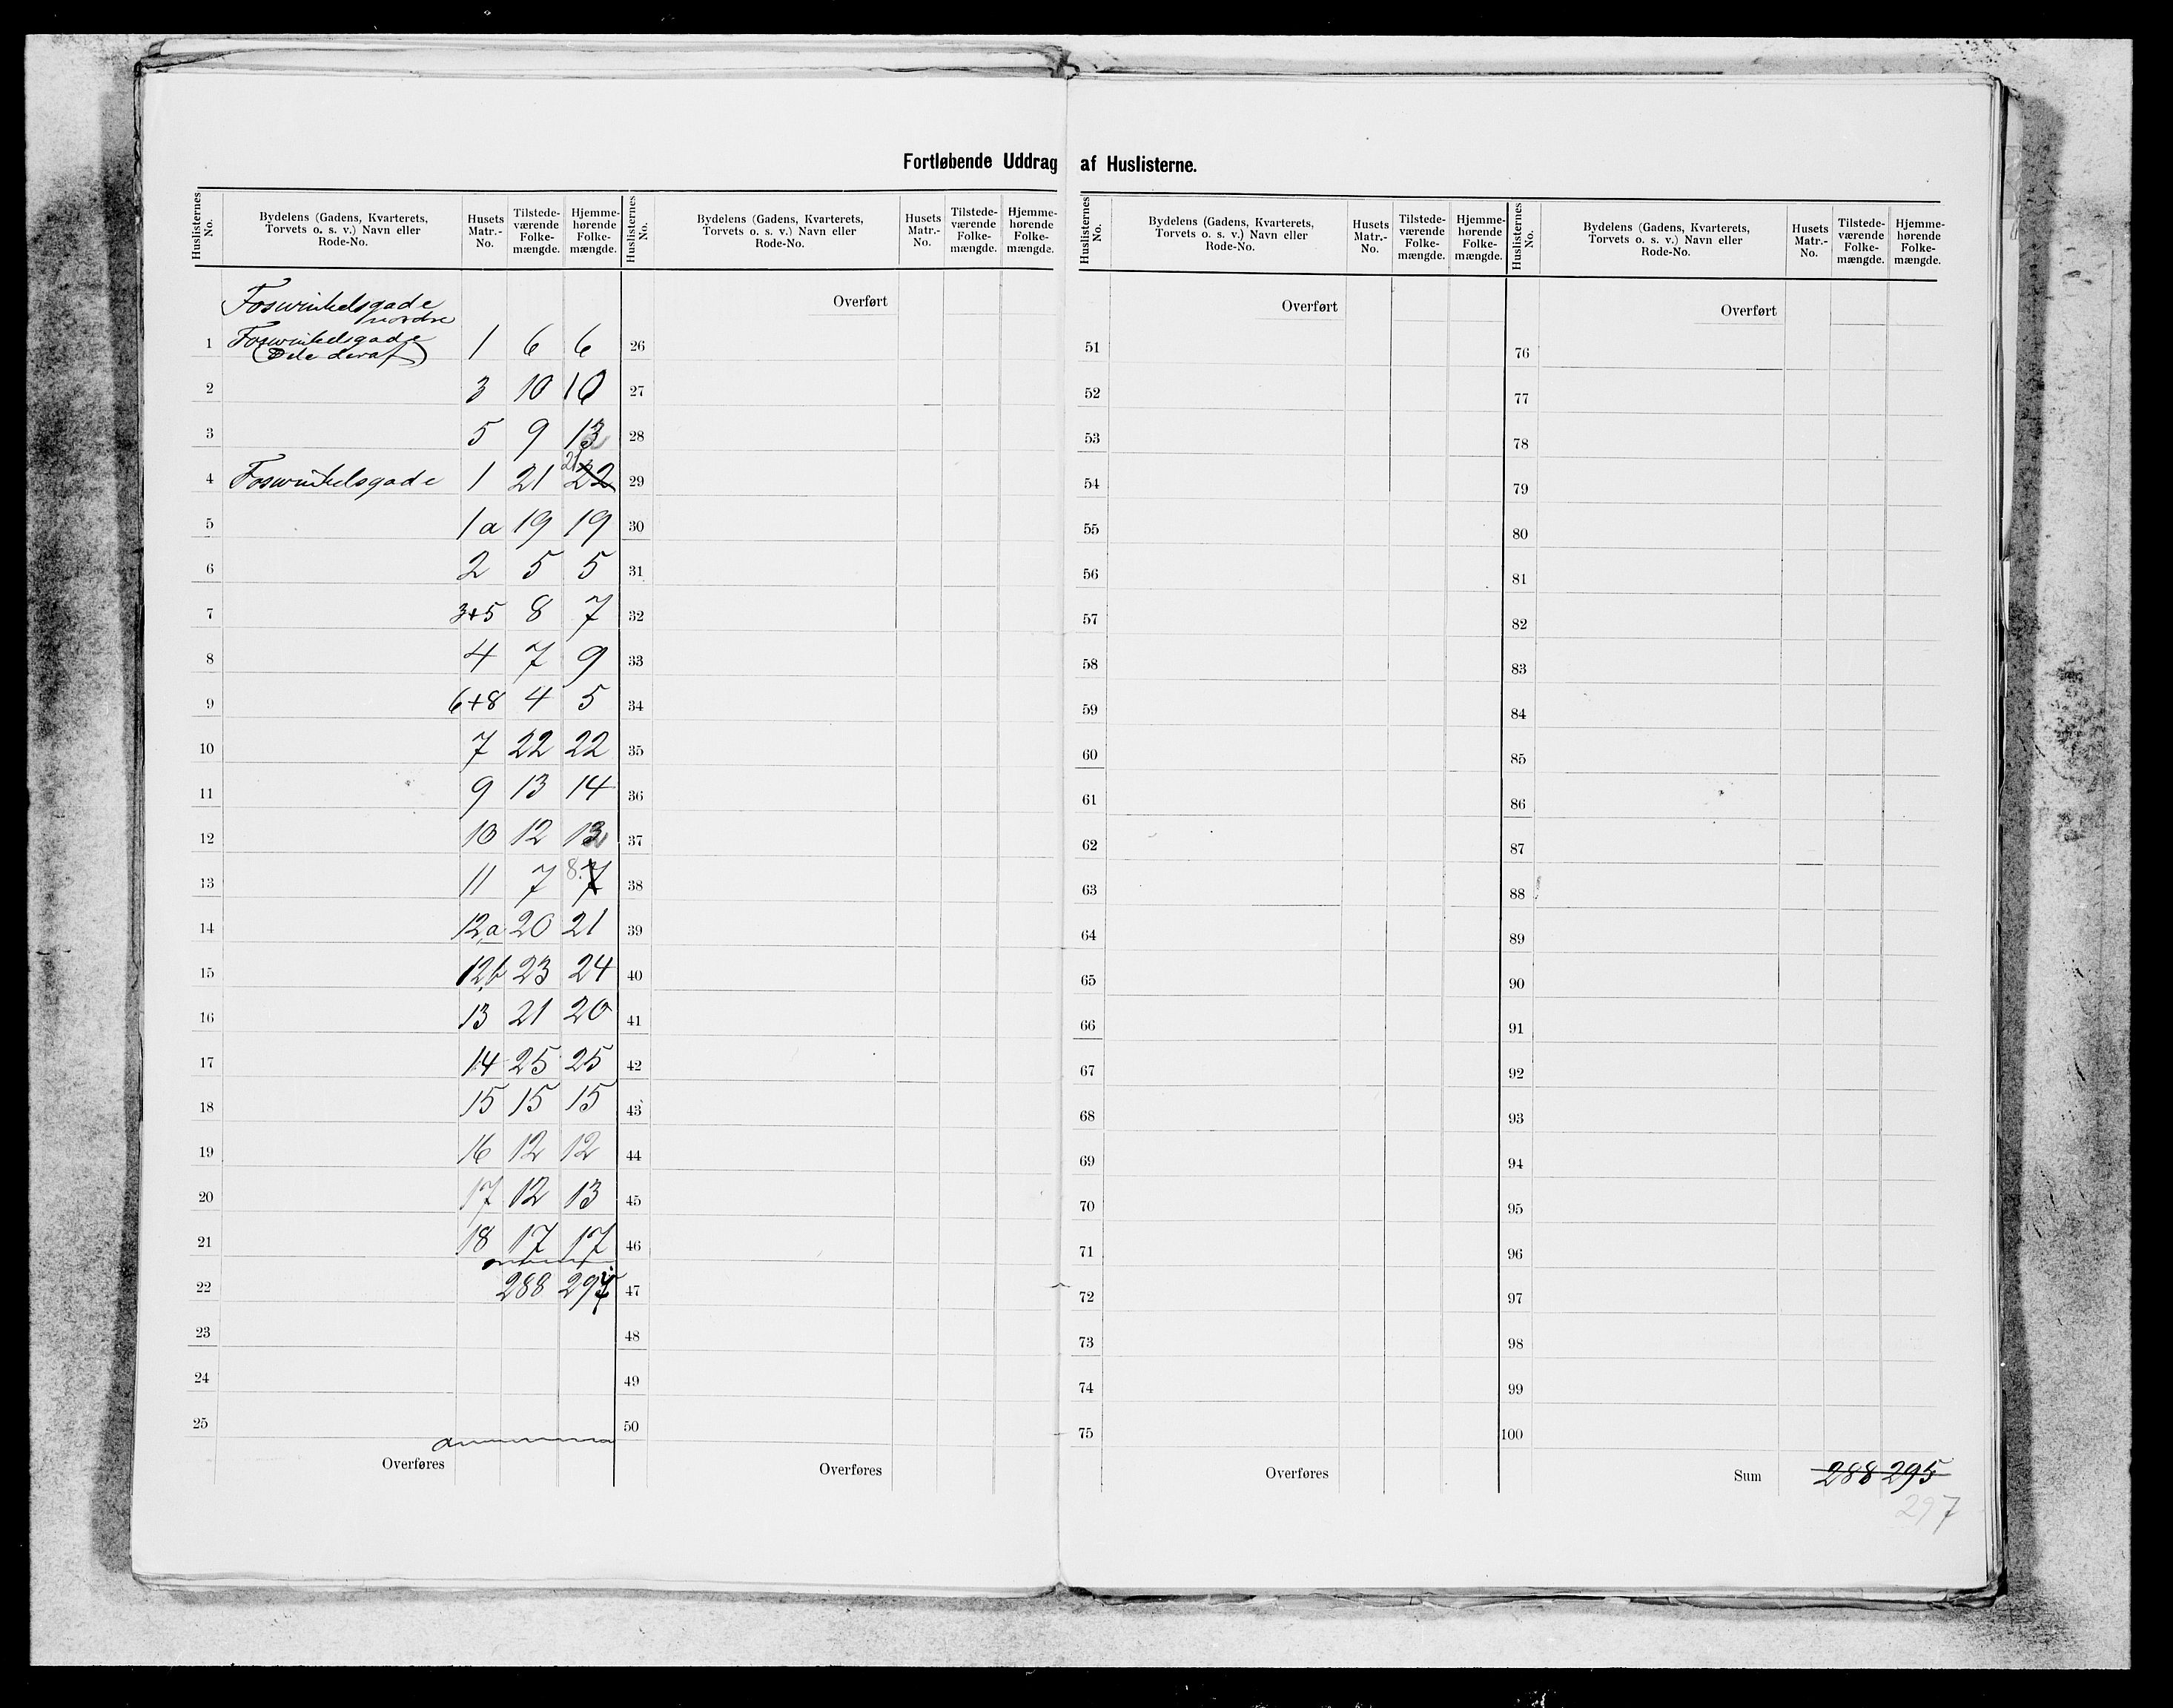 Fortløbende Uddrag af Huslisterne.
Huslisternes No. Bydelens (Gadens, Kvarterets, Torvets o. s. v.) Navn eller Rode-No. Husets Matr.-No. Tilstede-værende Folke-mængde. Hjemme-hørende Folke-mængde.
Foswinkelsgade
nordre
1 Foswinkelsgade 1 6 6
(Dele deraf)
2 3 10 10
3 5 9 13
4 Foswinkelsgade 1 21 21 22
5 1a 19 19
6 2 5 5
7 3+5 8 7
8 4 7 9
9 6+8 4 5
10 7 22 22
11 9 13 14
12 10 12 13
13 11 7 8. 7
14 12a 20 21
15 12b 23 24
16 13 21 20
17 14 25 25
18 15 15 15
19 16 12 12
20 17 12 13
21 18 17 17
22 288
23
24
25
Overføres
Huslisternes No. Bydelens (Gadens, Kvarterets, Torvets o. s. v.) Navn eller Rode-No. Husets Matr.-No. Tilstede-værende Folke-mængde. Hjemme-hørende Folke-mængde.
Overført
26
27
28
29
30
31
32
33
34
35
36
37
38
39
40
41
42
43
44
45
46
47
48
49
50
Overføres
Huslisternes No. Bydelens (Gadens, Kvarterets, Torvets o. s. v.) Navn eller Rode-No. Husets Matr.-No. Tilstede-værende Folke-mængde. Hjemme-hørende Folke-mængde.
Overført
51
52
53
54
55
56
57
58
59
60
61
62
63
64
65
66
67
68
69
70
71
72
73
74
75
Overføres
Huslisternes No. Bydelens (Gadens, Kvarterets, Torvets o. s. v.) Navn eller Rode-No. Husets Matr.-No. Tilstede-værende Folke-mængde. Hjemme-hørende Folke-mængde.
Overført
76
77
78
79
80
81
82
83
84
85
86
87
88
89
90
91
92
93
94
95
96
97
98
99
100
Sum 288 295
297